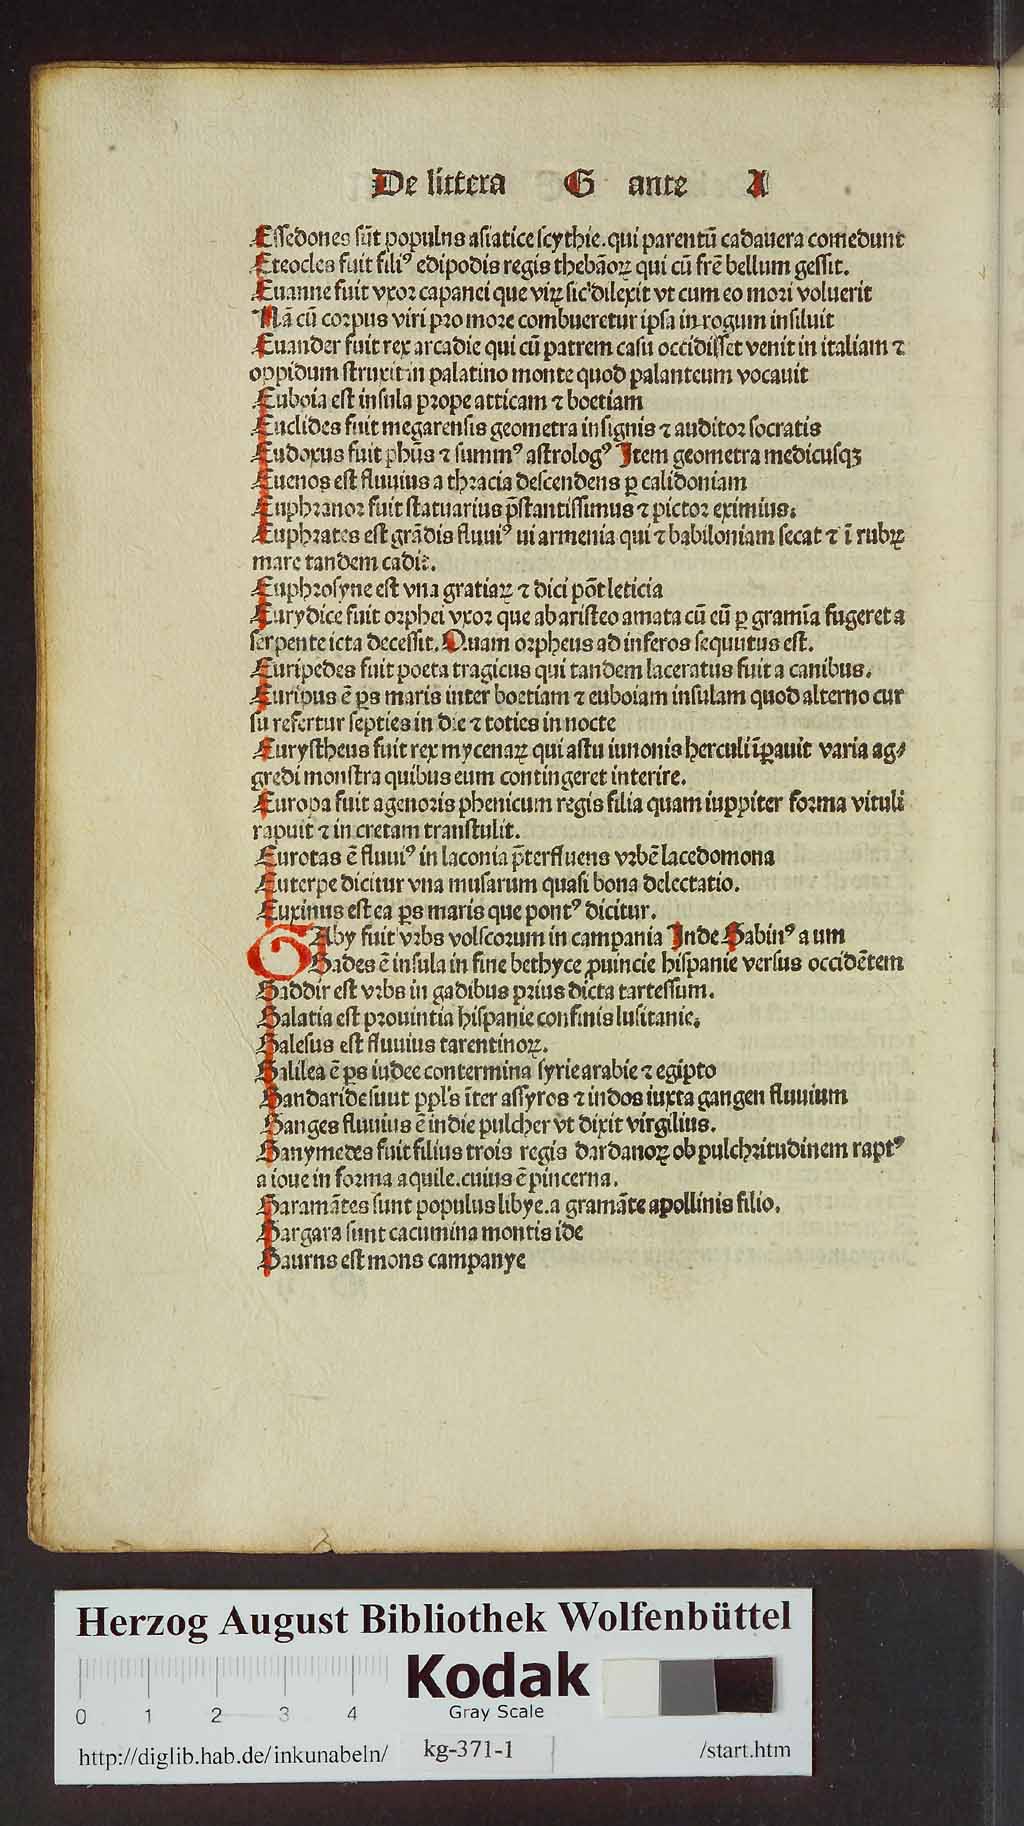 De littera G ante A
Essedones sūt populus asiatice scythie. qui parentū cadauera comedunt
Eteocles fuit filiꝰ edipodis regis thebāoꝝ qui cū frē bellum gessit.
Euanne fuit vxor capanei que viꝝ sic dilexit vt cum eo mori voluerit
Nā cū corpus viri pro more combueretur ipsa in rogum insiluit
Euander fuit rex arcadie qui cū patrem casu occidisset venit in italiam ⁊
oppidum struxit in palatino monte quod palanteum vocauit
Euboia est insula prope atticam ⁊ boetiam
Euclides fuit megarensis geometra insignis ⁊ auditor socratis
Eudoxus fuit phūs ⁊ summꝰ astrologꝰ Item geometra medicusqꝫ
Euenos est fluuius a thracia descendens ꝑ calidoniam
Euphranor fuit statuarius p̄stantissimus ⁊ pictor eximius.
Euphrates est grādis fluuiꝰ ui armenia qui ⁊ babiloniam secat ⁊ ī rubꝝ
mare tandem cadit.
Euphrosyne est vna gratiaꝝ ⁊ dici pōt leticia
Eurydice fuit orphei vxor que ab aristeo amata cū eū ꝑ gramīa fugeret a
serpente icta decessit. Quam orpheus ad inferos sequutus est.
Euripedes fuit poeta tragicus qui tandem laceratus fuit a canibus.
Euripus ē ꝑs maris inter boetiam ⁊ euboiam insulam quod alterno cur
su refertur septies in die ⁊ toties in nocte
Eurystheus fuit rex mycenaꝝ qui astu iunonis herculi īꝑauit varia ag⸗
gredi monstra quibus eum contingeret interire.
Europa fuit agenoris phenicum regis filia quam iuppiter forma vituli
rapuit ⁊ in cretam transtulit.
Eurotas ē fluuiꝰ in laconia p̄terfluens vrbē lacedomona
Euterpe dicitur vna musarum quasi bona delectatio.
Euxinus est ea ꝑs maris que pontꝰ dicitur.
GAby fuit vrbs volscorum in campania Inde Gabinꝰ a um
Gades ē insula in fine bethyce ꝓuincie hispanie versus occidētem
Gaddir est vrbs in gadibus prius dicta tartessum.
Galatia est prouintia hispanie confinis lusitanie.
Galesus est fluuius tarentinoꝝ.
Galilea ē ꝑs iudee contermina syrie arabie ⁊ egipto
Gandaride suut ppl's īter assyros ⁊ indos iuxta gangen fluuium
Ganges fluuius ē indie pulcher vt dixit virgilius.
Ganymedes fuit filius trois regis dardanoꝝ ob pulchritudinem raptꝰ
a ioue in forma aquile. cuius ē pincerna.
Garamātes sunt populus libye. a gramāte apollinis filio.
Gargara sunt cacumina montis ide
Gaurns est mons campanye
Herzog August Bibliothek Wolfenbüttel
0 1 2 3 4
Kodak
Gray Scale
http://diglib.hab.de/inkunabeln/ kg-371-1 /start.htm